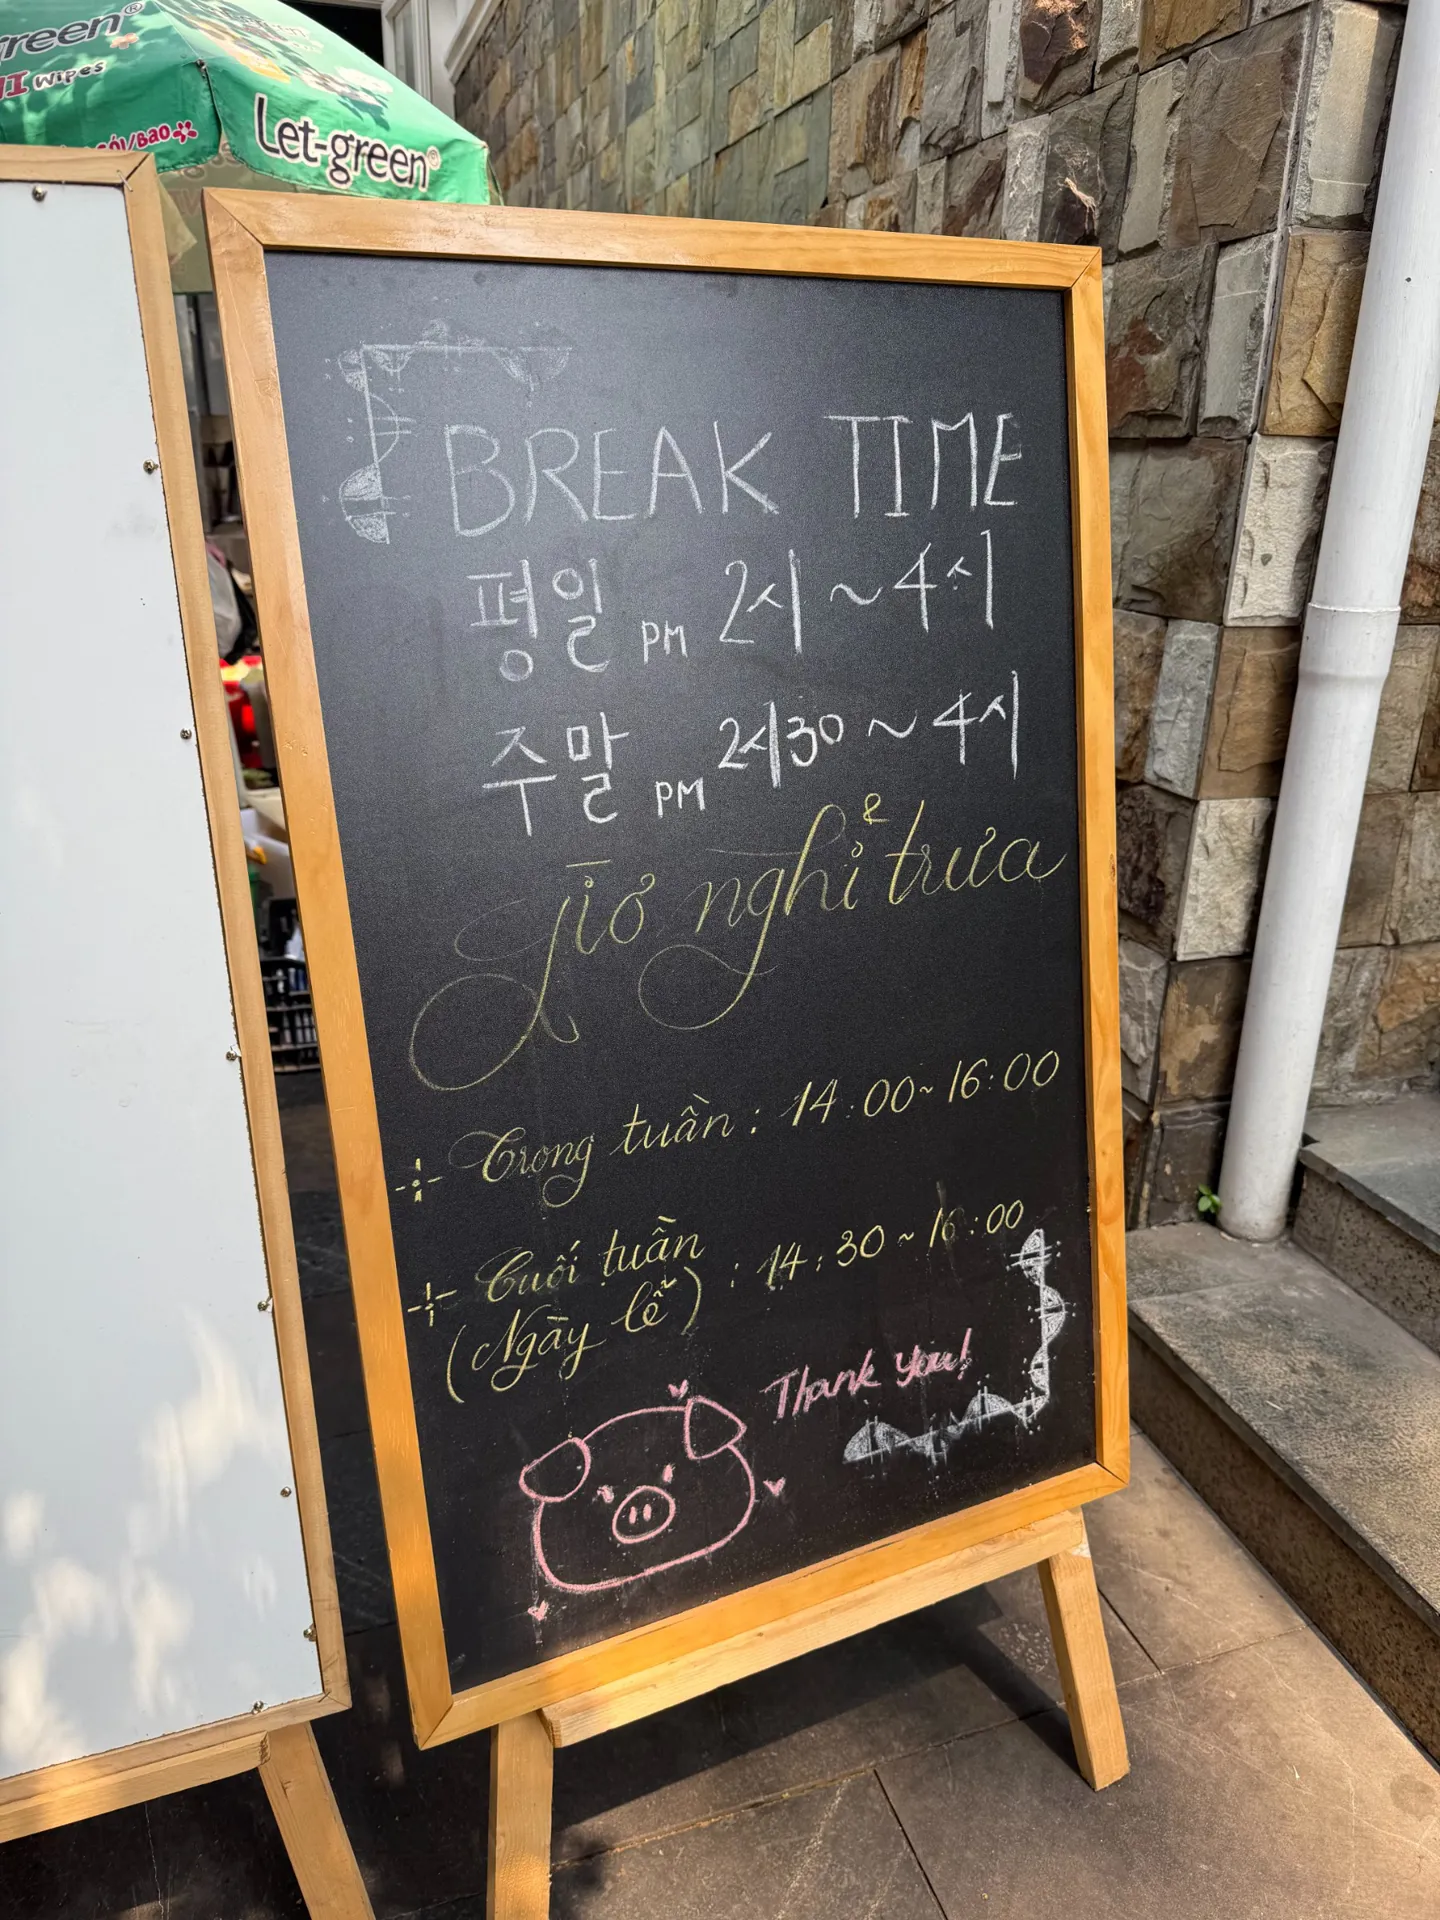 reen®
Wipes
Let-green®
BREAK TIME
평일 PM 2시~4시
주말 PM 2시30~4시
giờ nghỉ trưa
Trong tuần: 14:00~16:00
Cuối tuần : 14:30~16:00
(Ngày lễ)
Thank you!